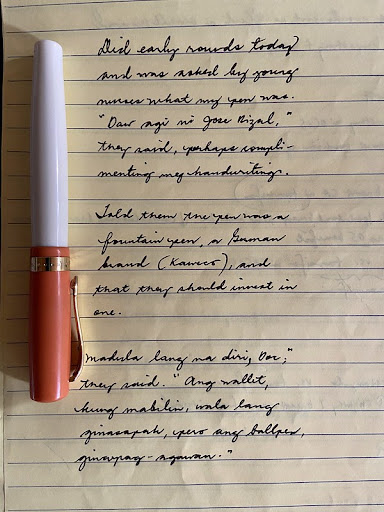 Did early rounds today
and was asked by young
nurses what my pen was.
"Daw agi ni Jose Rizal,"
they said, perhaps compli-
menting my handwriting.
Told them the pen was a
fountain pen, a German
brand (Kaweco), and
that they should invest in
one.
"Madula lang na diri, Doc,"
they said. "Ang wallet,
kung mabilin, wala lang
ginasapak, pero ang ballpen,
ginapag-agawan."